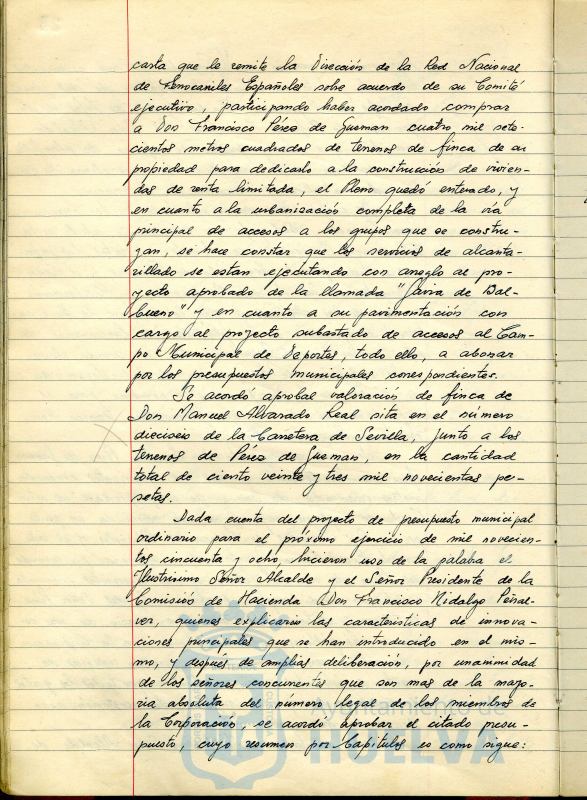 carta que le remite la Dirección de la Red Nacional
de Ferrocarriles Españoles sobre acuerdo de su Comité
ejecutivo, participando haber acordado comprar
a Don Francisco Pérez de Guzman cuatro mil sete-
cientos metros cuadrados de terrenos de finca de su
propiedad para dedicarlo a la construcción de vivien-
das de renta limitada, el Pleno quedó enterado, y
en cuanto a la urbanización completa de la vía
principal de accesos a los grupos que se constru-
yan, se hace constar que los servicios de alcanta-
rillado se estan ejecutando con arreglo al pro-
yecto aprobado de la llamada "Gavia de Bal-
bueno" y en cuanto a su pavimentación con
cargo al projecto subastado de accesos al Cam-
po Municipal de Deportes, todo ello, a abonar
por los presupuestos municipales correspondientes.
Se acordó aprobar valoración de finca de
Don Manuel Alvarado Real sita en el número
dieciseis de la Carretera de Sevilla, junto a los
terrenos de Pérez de Guzman, en la cantidad
total de ciento veinte y tres mil novecientas pe-
setas.
Dada cuenta del projecto de presupuesto municipal
ordinario para el próximo ejercicio de mil novecien-
tos cincuenta y ocho, hicieron uso de la palabra el
Ilustrisimo Señor Alcalde y el Señor Presidente de la
Comisión de Hacienda Don Francisco Hidalgo Peñal-
ver, quienes explicarón las características de innova-
ciones principales que se han introducido en el mis-
mo, y después de amplias deliberación, por unanimidad
de los señores concurrentes que son mas de la mayo-
ria absoluta del número legal de los miembros de
la Corporación, se acordó aprobar el citado presu-
puesto, cuyo resumen por Capítulos es como sigue:
HUELVA